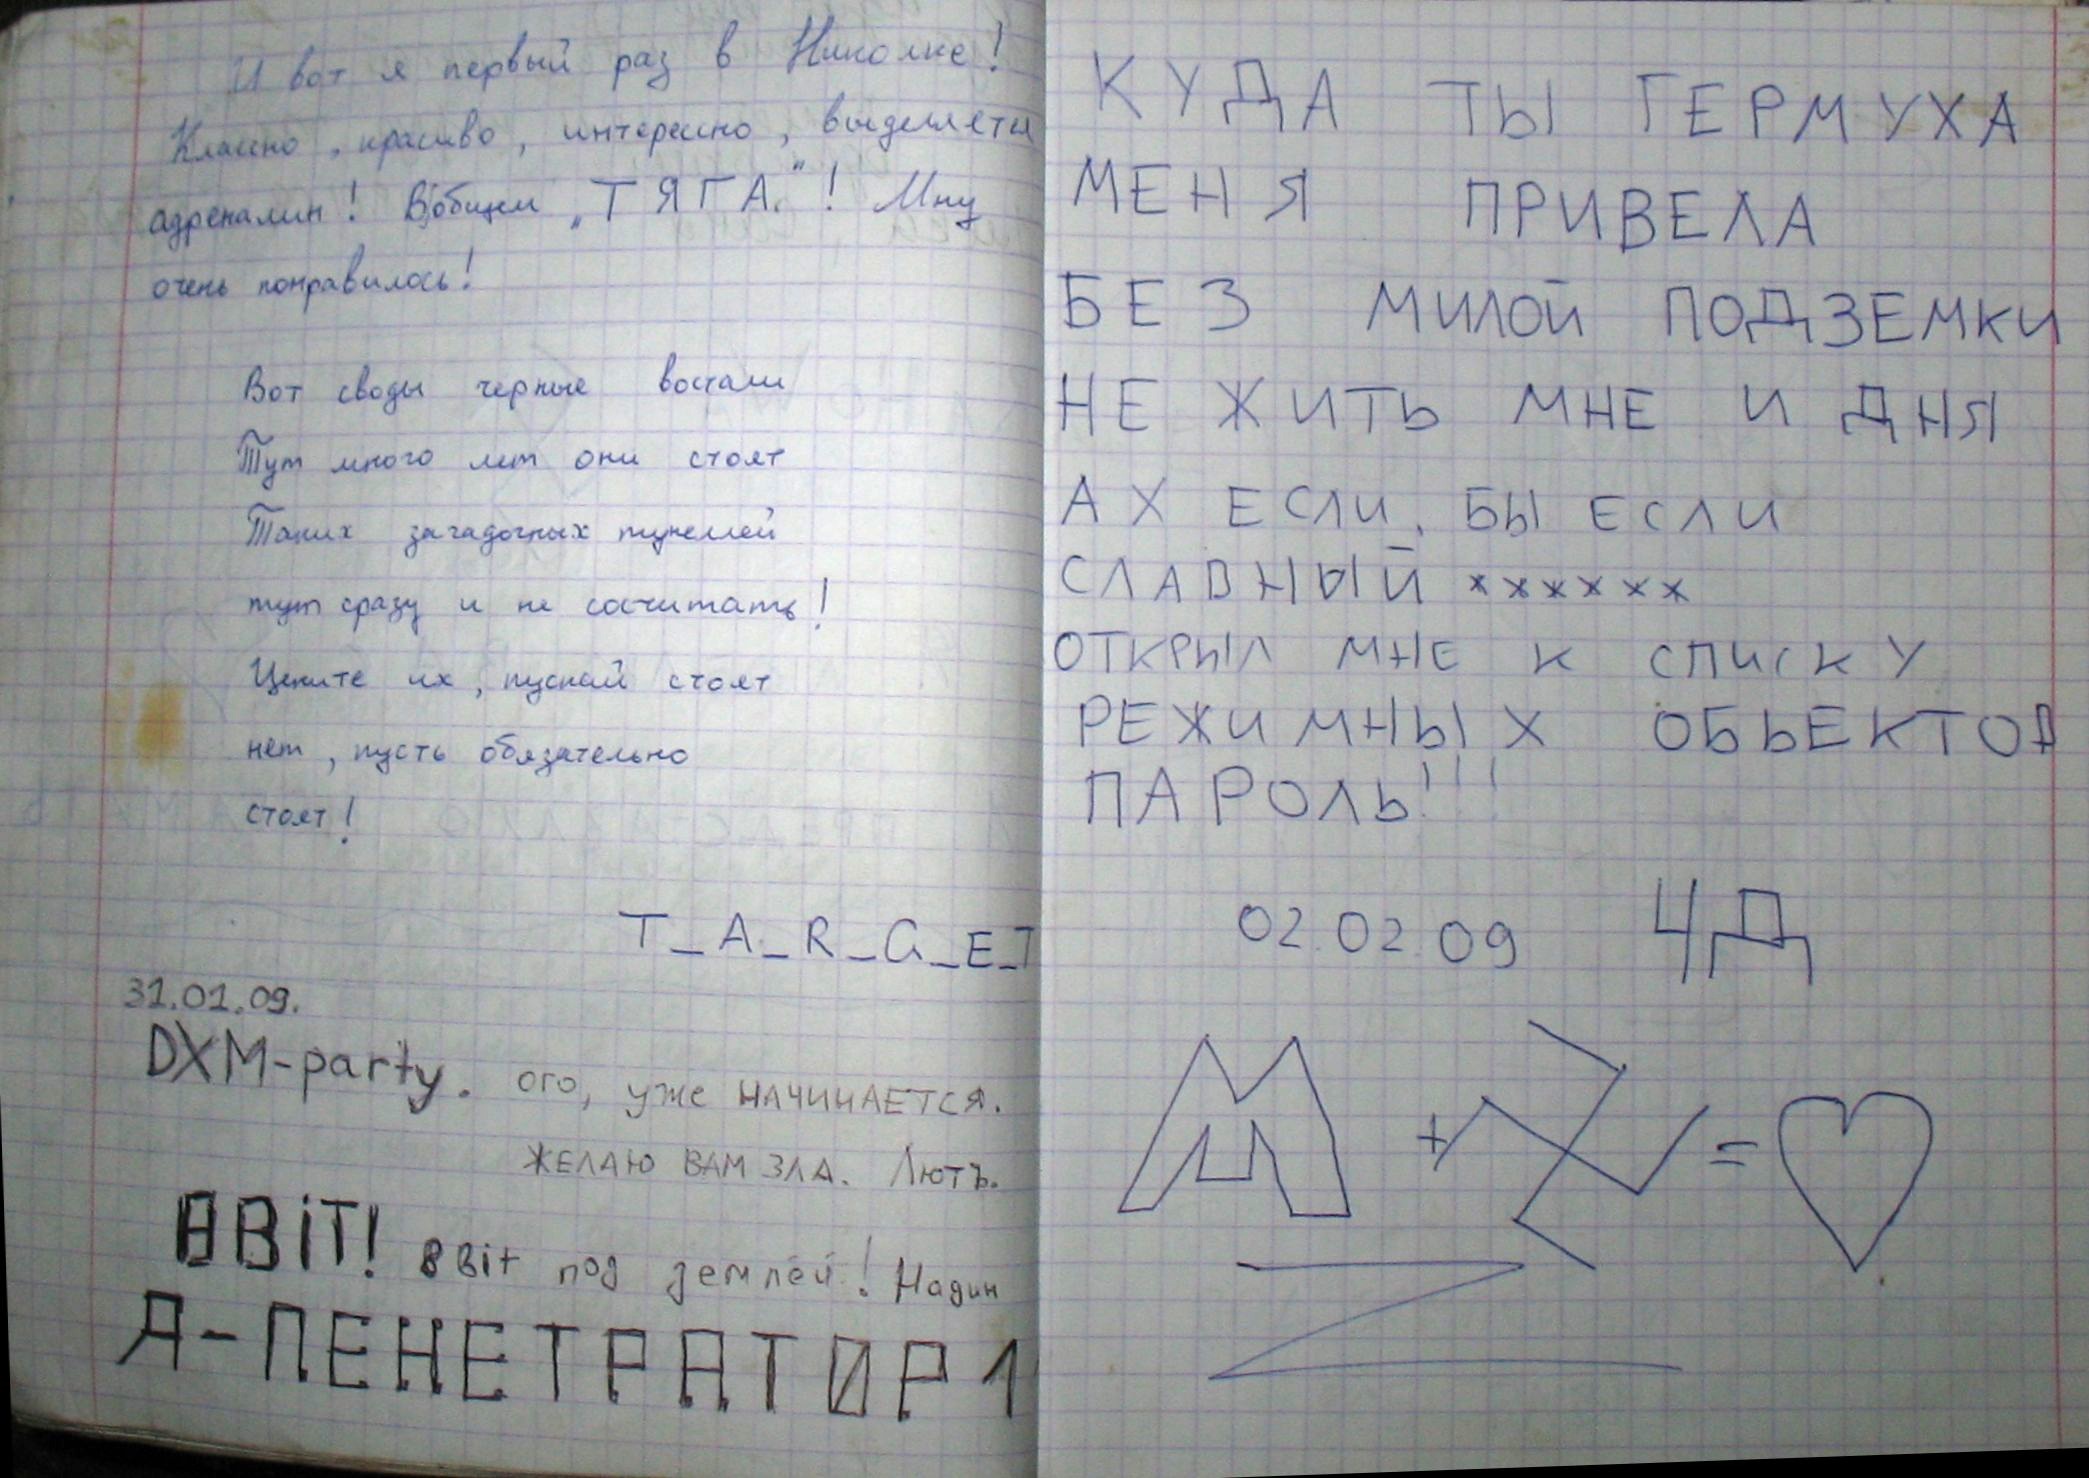 И вот я первый раз в Николке!
Классно, красиво, интересно, выделяется
адреналин! Вобщем „ТЯГА."! Мну
очень понравилось!
Вот своды черные востали
Тут много лет они стоят
Таких загадочных тунелей
тут сразу и не сосчитать!
Цените их, пускай стоят
нет, пусть обязательно
стоят!
T_A_R_G_E_T
31.01.09.
DXM-party. ого, уже НАЧИНАЕТСЯ.
ЖЕЛАЮ ВАМ ЗЛА. Лютъ.
8BiT! 8Bit под землёй! Надин
Я-ПЕНЕТРАТОР1
КУДА ТЫ ГЕРМУХА
МЕНЯ ПРИВЕЛА
БЕЗ МИЛОЙ ПОДЗЕМКИ
НЕ ЖИТЬ МНЕ И ДНЯ
АХ ЕСЛИ, БЫ ЕСЛИ
СЛАВНЫЙ xxxxxx
ОТКРЫЛ МНЕ К СПИСКУ
РЕЖИМНЫХ ОБЬЕКТОВ
ПАРОЛЬ!!!
02.02.09 ЧД
М + = ♡